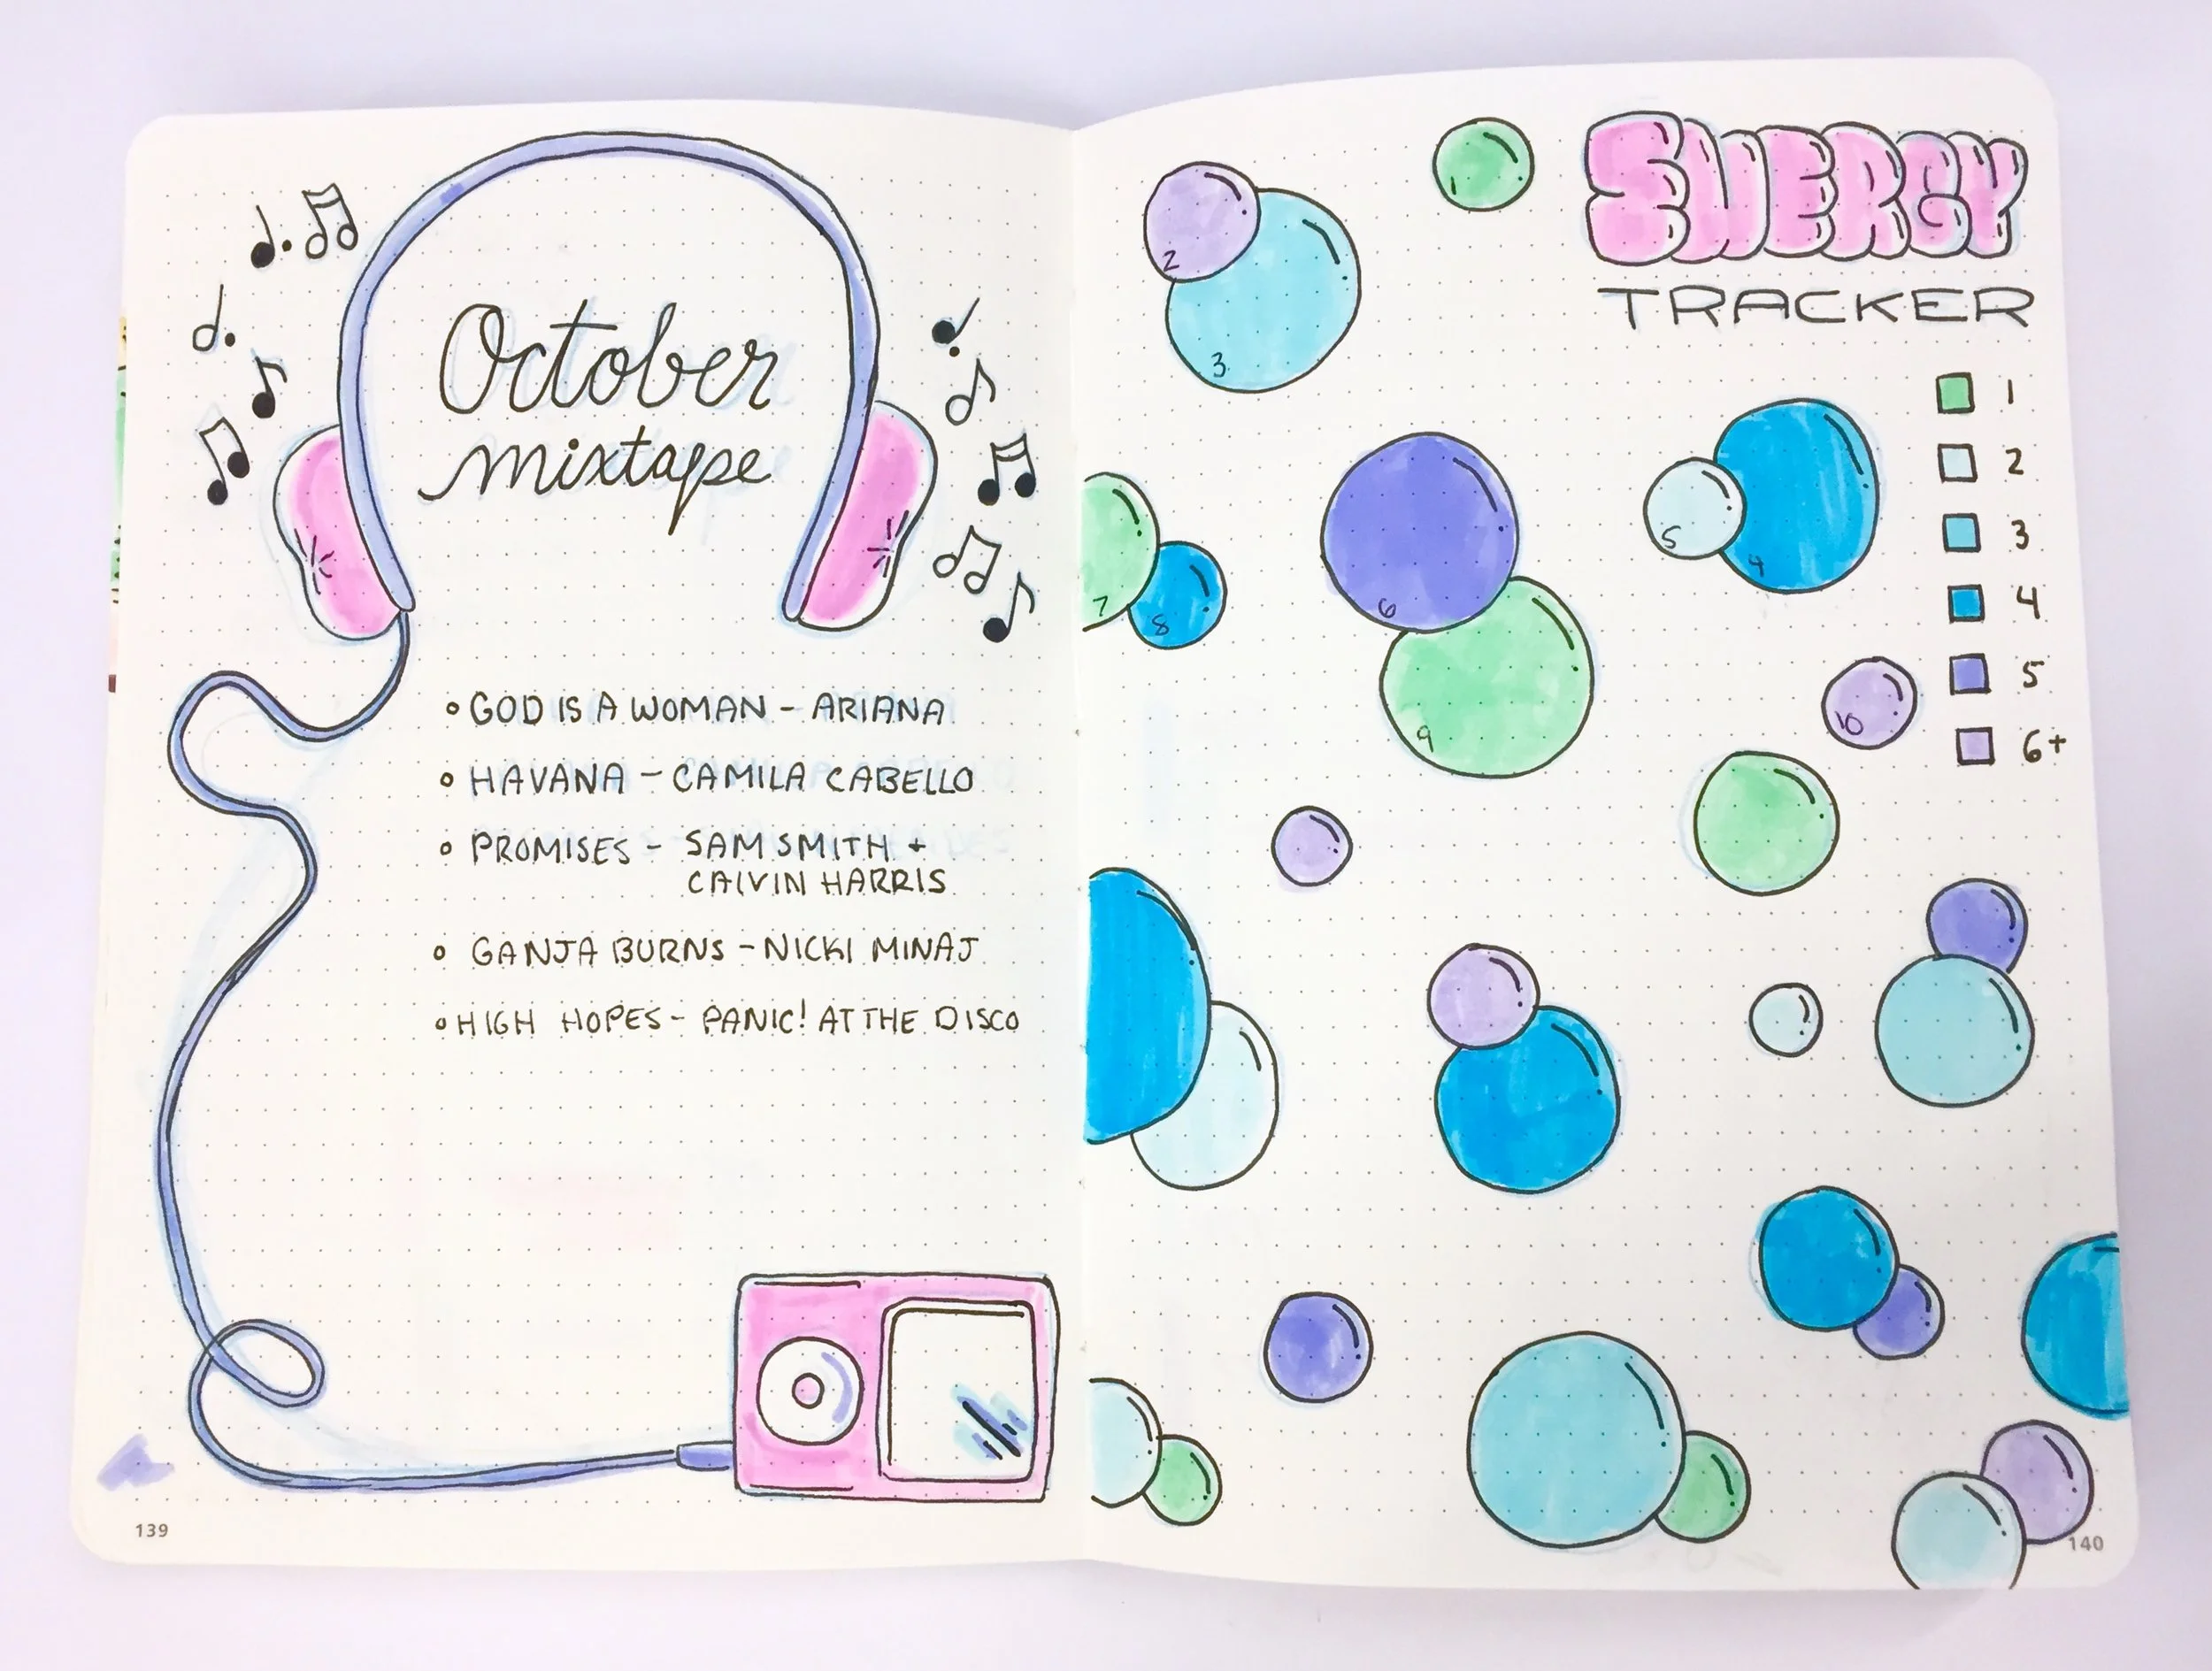 October
mixtape
° GOD IS A WOMAN - ARIANA
° HAVANA - CAMILA CABELLO
° PROMISES - SAM SMITH +
CALVIN HARRIS
° GANJA BURNS - NICKI MINAJ
° HIGH HOPES - PANIC! AT THE DISCO
139
ENERGY
TRACKER
1
2
3
4
5
6+
2
3
5
4
6
7
8
9
10
140